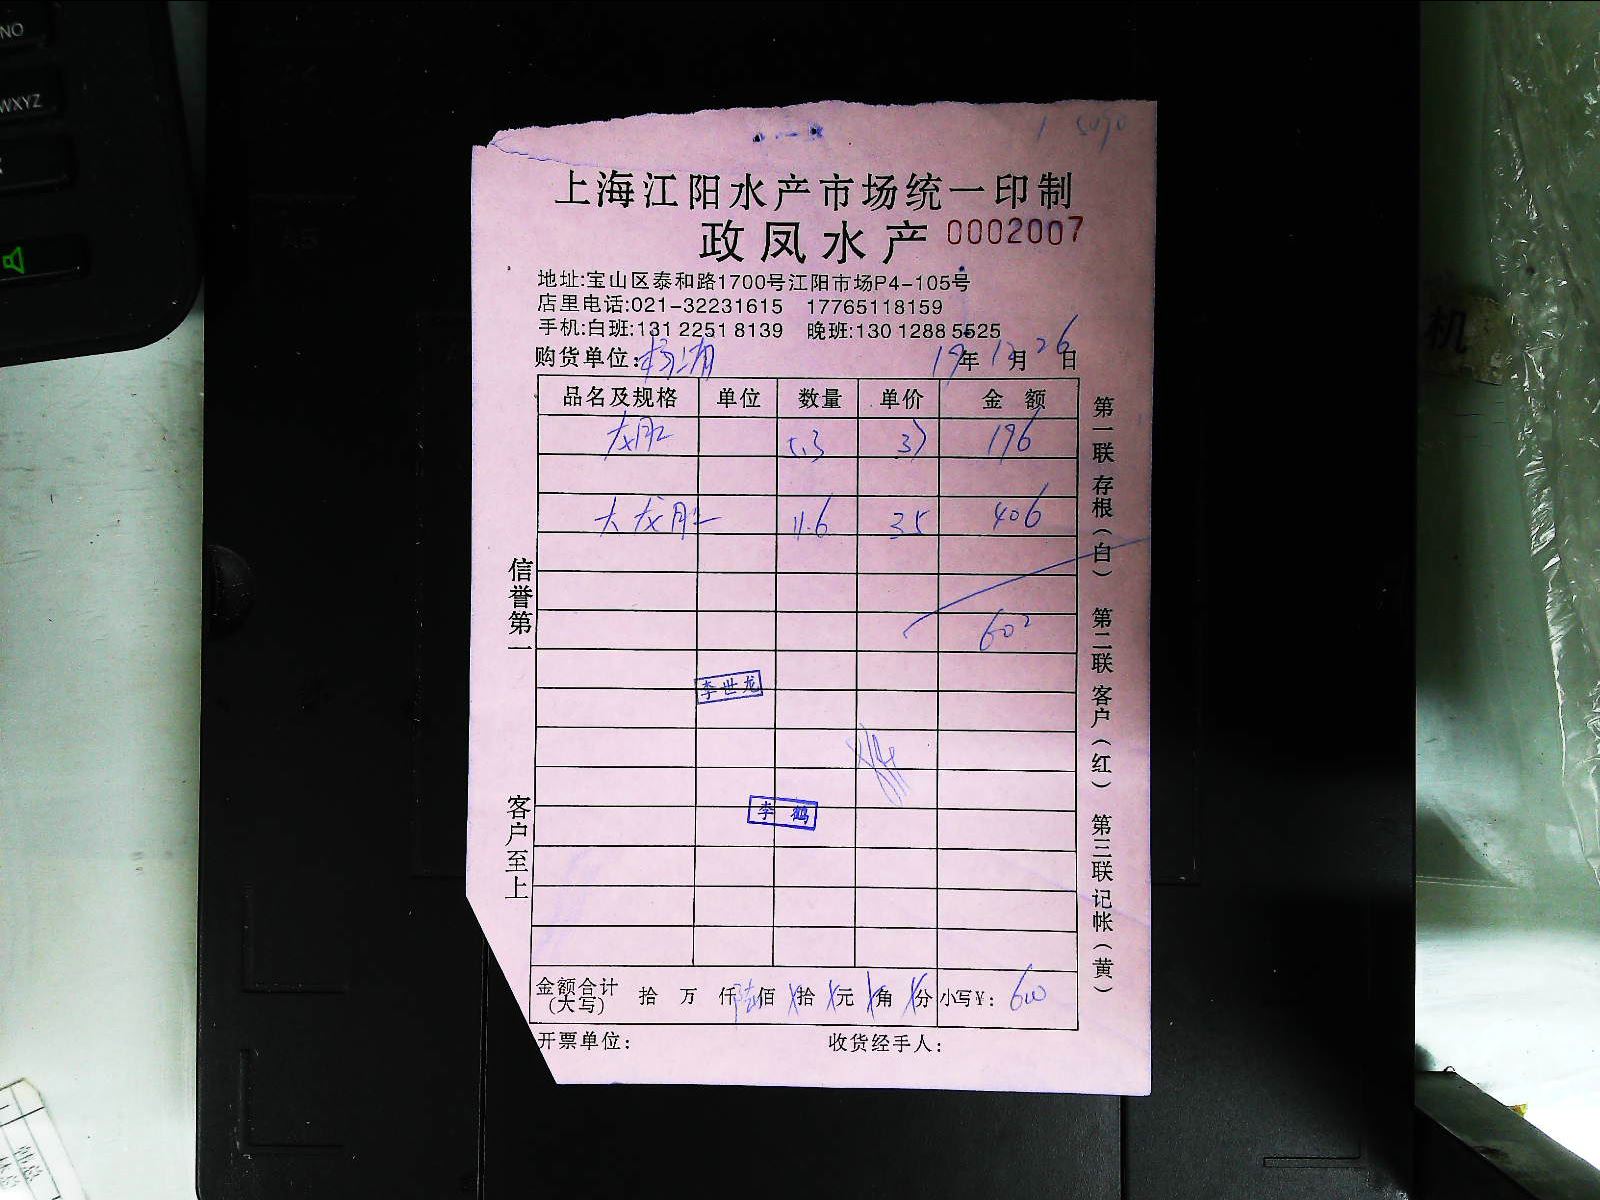 NO
WXYZ
上海江阳水产市场统一印制
政凤水产 0002007
地址:宝山区泰和路1700号江阳市场P4-105号
店里电话:021-32231615 17765118159
手机:白班:131 2251 8139 晚班:130 1288 5525
购货单位: 19年12月26日
品名及规格 单位 数量 单价 金 额
龙胆 5.3 37 196
大龙胆 11.6 35 406
602
李世龙
李 鹤
金额合计(大写) 拾 万 仟陆佰 拾 元 角 分 小写¥: 600
开票单位: 收货经手人:
信誉第一 客户至上
第一联 存根(白) 第二联 客户(红) 第三联 记帐(黄)
机